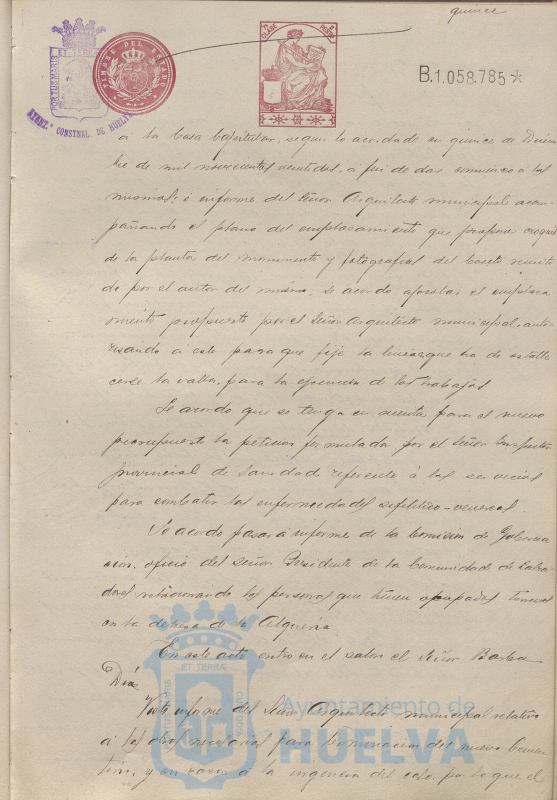 quince
PORTUS MARIS
ET TERRÆ
CUSTODIA
AYUNT.º CONSTNAL. DE HUELVA
TIMBRE DEL ESTADO
CLASE
B.1.058.785*
a la Casa Capitular, segun lo acordado en quince de Diciem
bre de mil novecientos veintidos, a fin de dar comienzo a las
mismas; é informe del Señor Arquitecto municipal acom
pañando el plano del emplazamiento que propone croquis
de la planta del monumento y fotografias del boceto remiti
do por el autor del mismo, se acordó aprobar el emplaza
miento propuesto por el Señor Arquitecto municipal, auto
rizando a este para que fije la linea que ha de estable
cerse la valla, para la ejecucion de los trabajos
Se acordó que se tenga en cuenta para el nuevo
presupuesto la peticion formulada por el Señor Inspector
provincial de Sanidad referente á los servicios
para combatir las enfermedades sifilitico-venereas.
Se acordó pasar á informe de la Comision de Goberna
cion, oficio del Señor Presidente de la Comunidad de Labra
dores relacionando las personas que tienen ocupados terrenos
en la dehesa de la Alqueria
En este acto entró en el salon el Señor Barba
Diaz
Visto informe del Señor Arquitecto municipal relativo
á las obras necesarias para terminacion del nuevo Cemen
terio, y en razon á la urgencia del caso por lo que el
PORTUS MARIS
ET TERRÆ
CUSTODIA
Ayuntamiento de
HUELVA